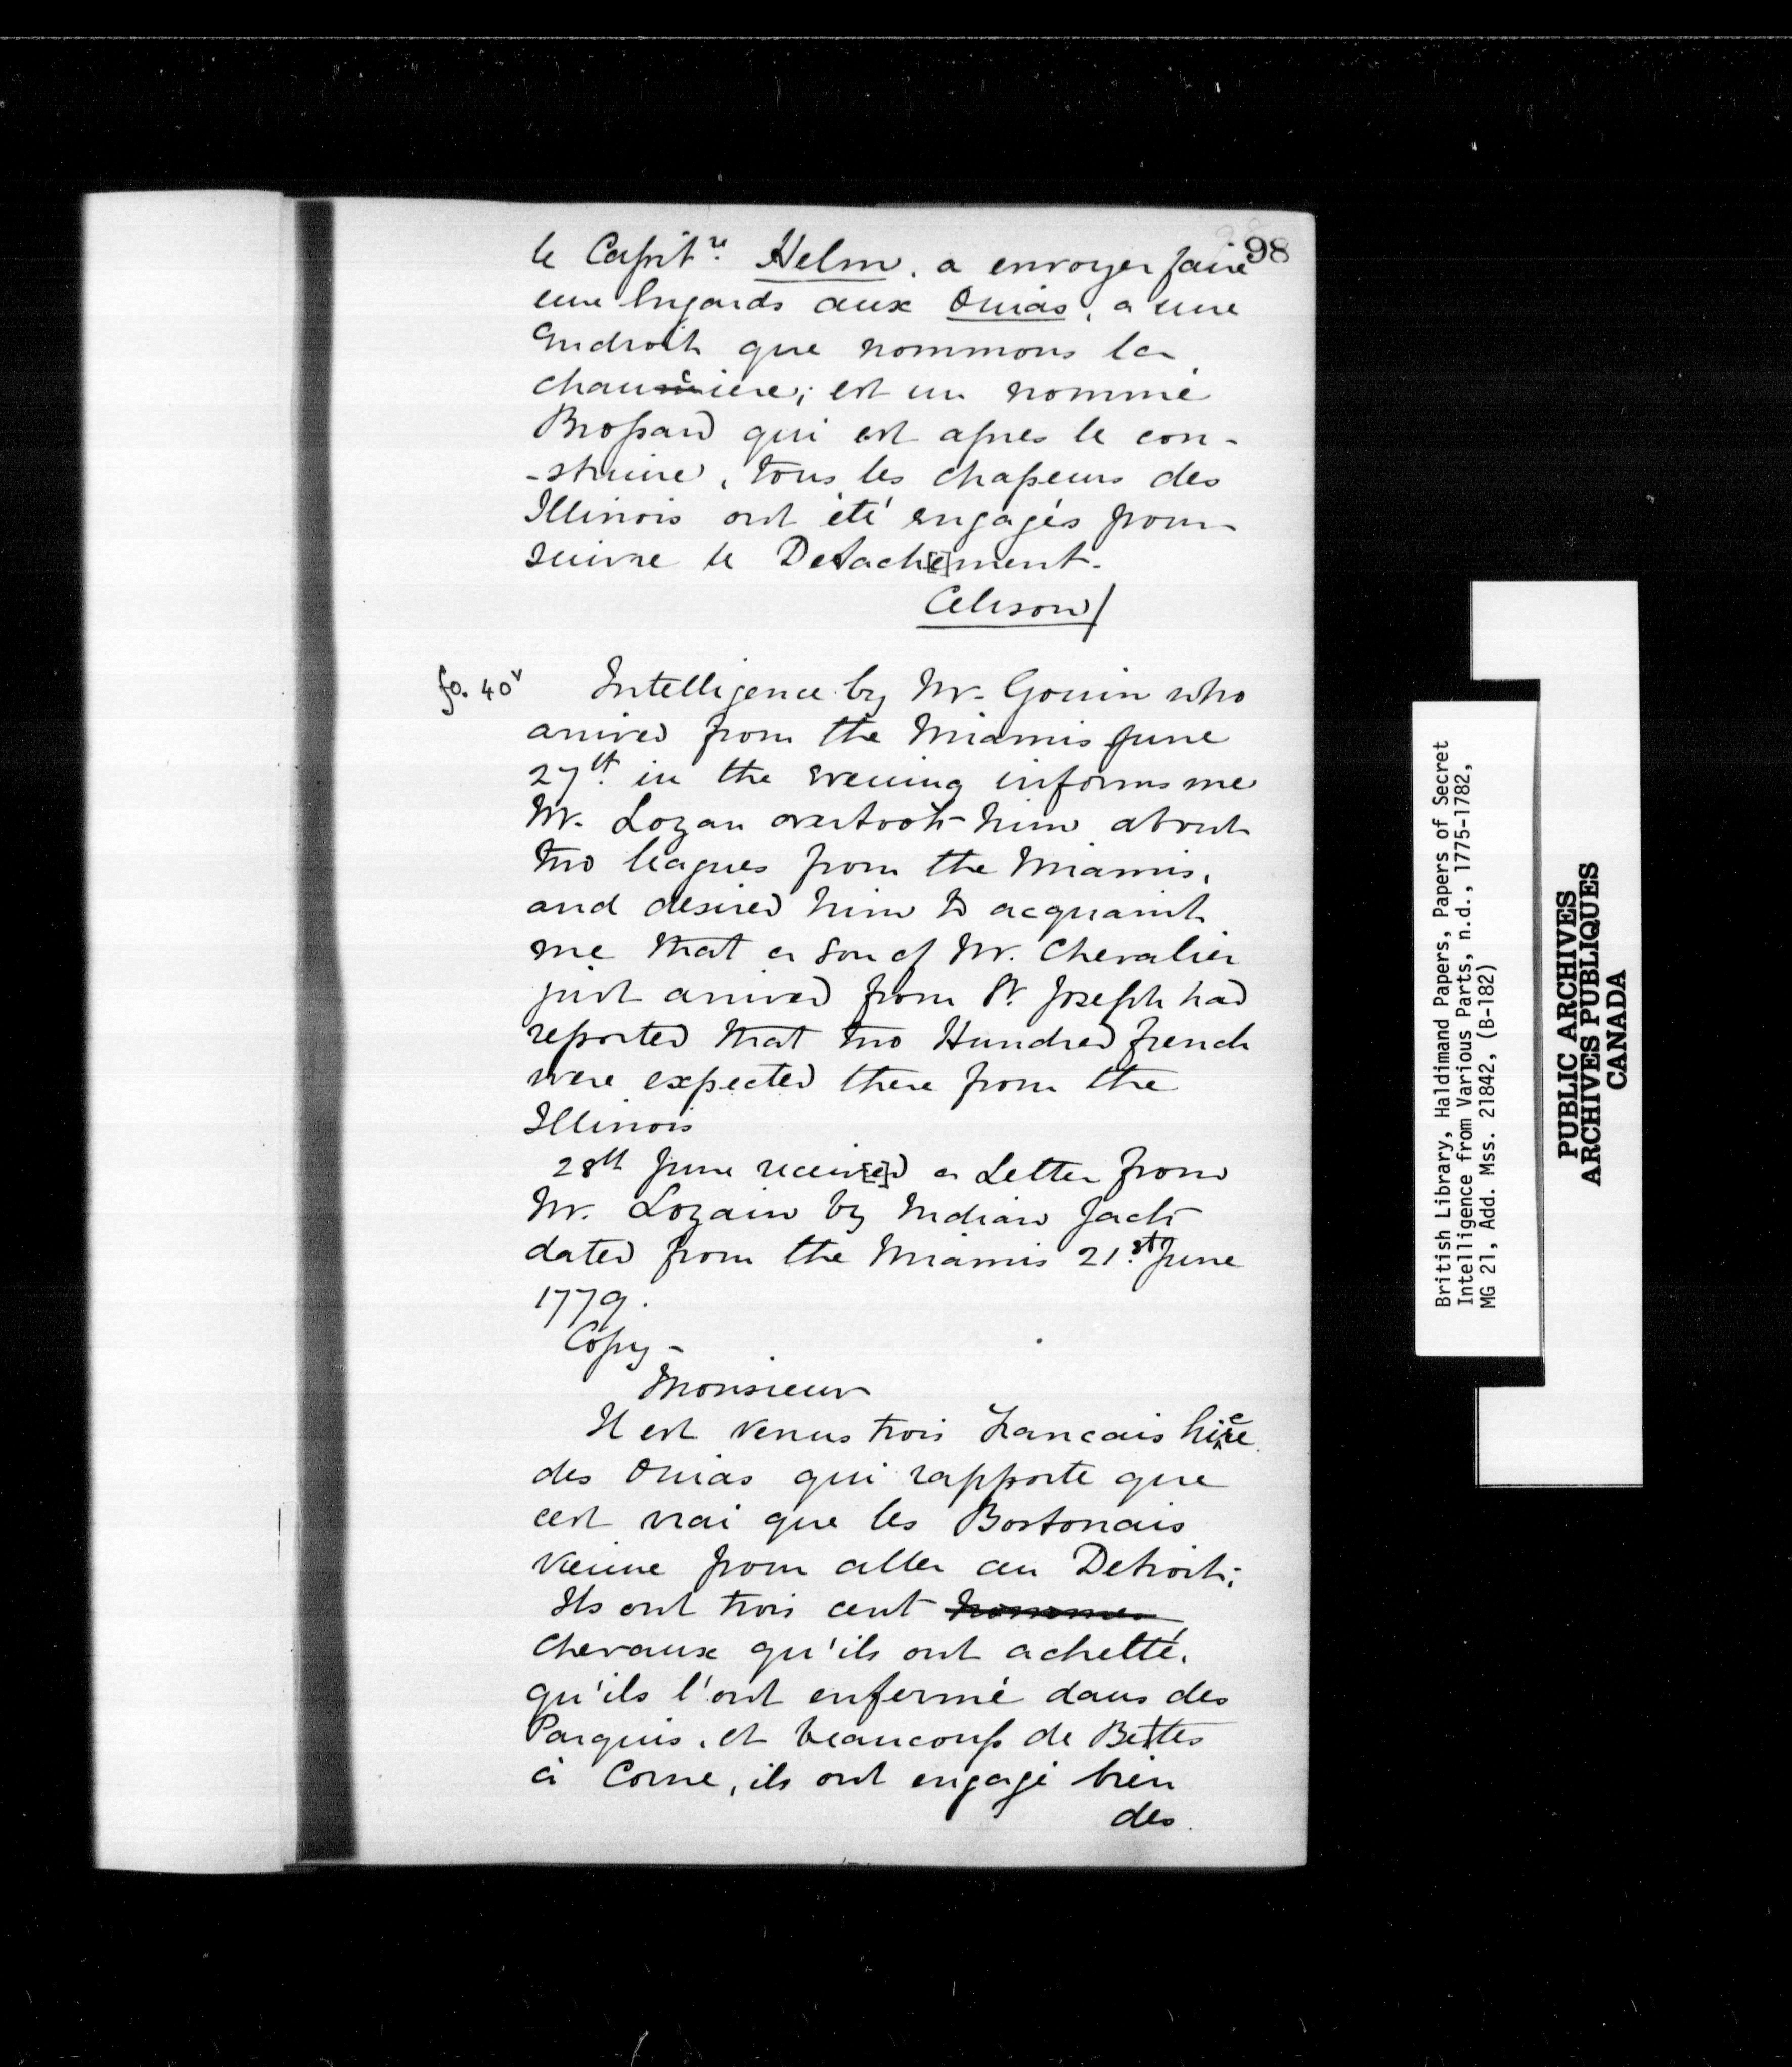 98
le Capit.re Helm, a envoyer faire
une brigards aux Ouias, a une
Endroit que nommons la
chaumiere; est un nommé
Brossard qui est apres le con-
-struire, tous les chasseurs des
Illinois ont été engagés pour
suivre le Detach[e]ment.
Celeron/
fo. 40v
Intelligence by Mr. Gouin who
arrived from the Miamis June
27th. in the evening informs me
Mr. Lozan overtook him about
two leagues from the Miamis,
and desired him to acquaint
me that a son of Mr. Chevalier
just arrived from St. Joseph had
reported that two Hundred french
were expected there from the
Illinois
28th June receiv[e]d a Letter from
Mr. Lozain by Indian Jack
dated from the Miamis 21.st June
1779.
Copy -
Monsieur
Il est venus trois Francais hiere
des Ouias qui rapporte que
cest vrai que les Bostonais
vienne pour aller au Detroit;
Ils ont trois cent hommes
chevaux qu'ils ont achetté,
qu'ils l'ont enfermé dans des
Parquis, et beaucoup de Bettes
à Corne, ils ont engagé bien
des
British Library, Haldimand Papers, Papers of Secret
Intelligence from Various Parts, n.d., 1775-1782,
MG 21, Add. Mss. 21842, (B-182)
PUBLIC ARCHIVES
ARCHIVES PUBLIQUES
CANADA